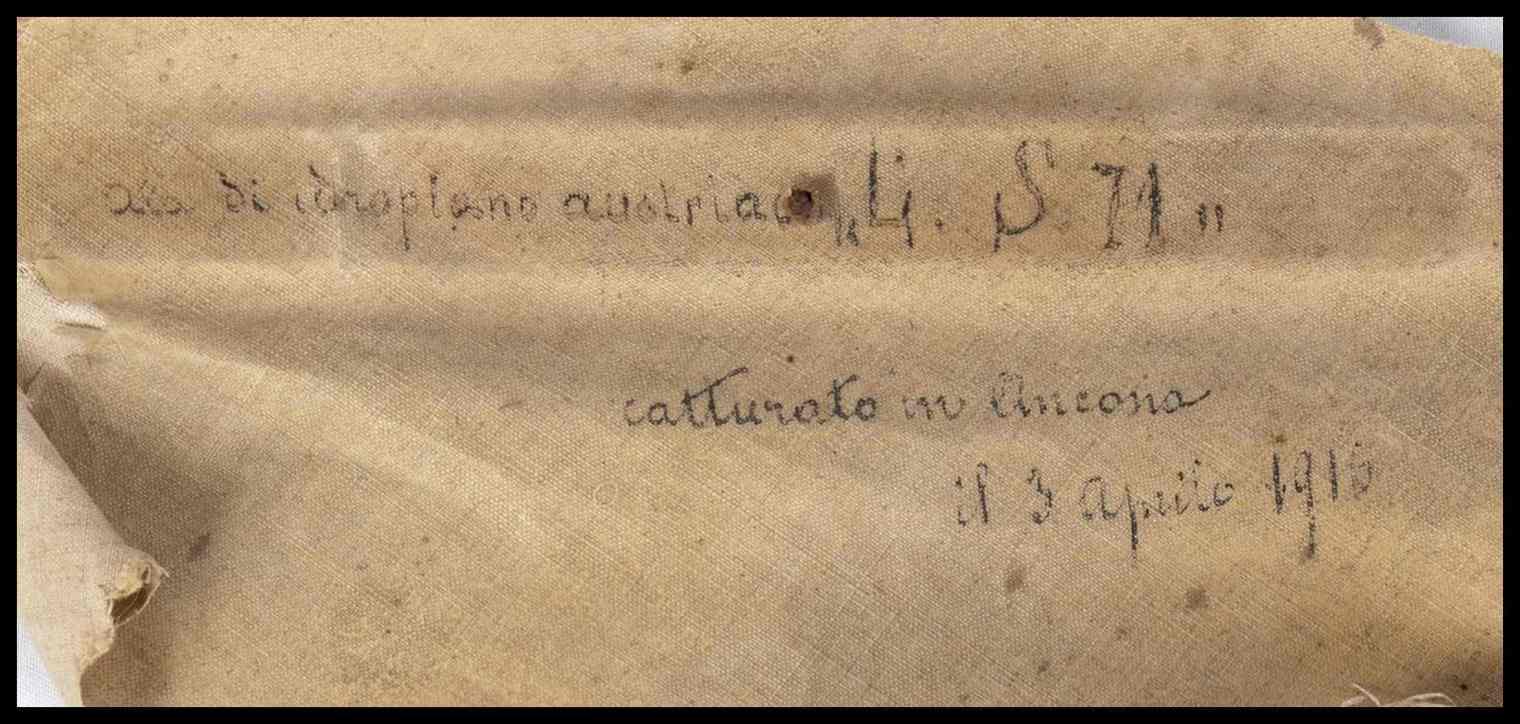 ala di idroplano austriaco „Li. S. 71„
catturato in Ancona
il 3 Aprile 1916